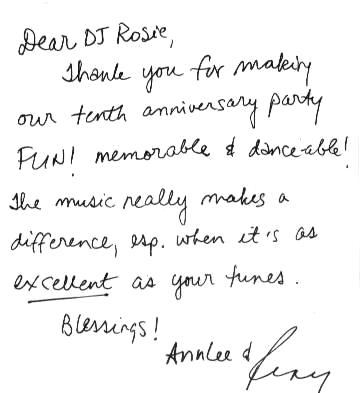 Dear DJ Rosie,
Thank you for making
our tenth anniversary party
FUN! memorable & dance-able!
The music really makes a
difference, esp. when it's as
excellent as your tunes.
Blessings!
Annlee &